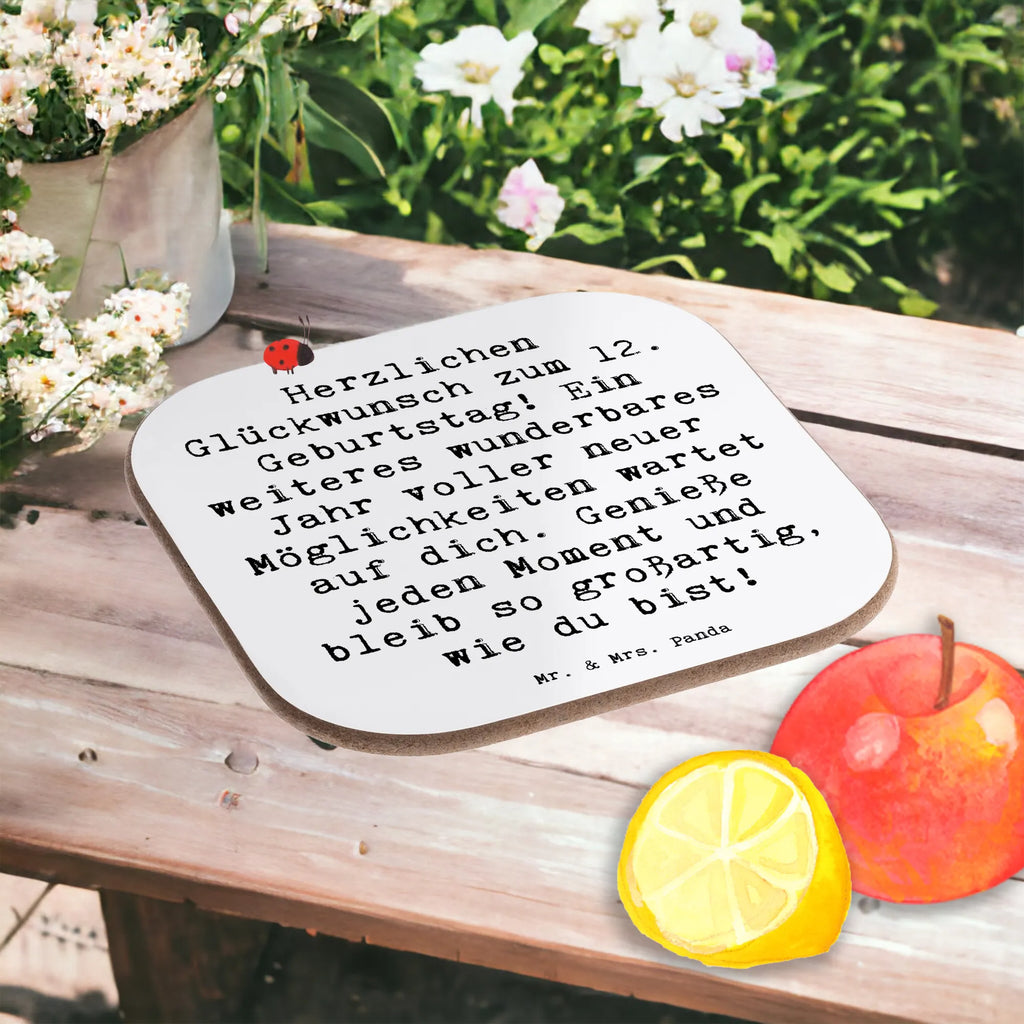 Herzlichen
Glückwunsch zum 12.
Geburtstag! Ein
weiteres wunderbares
Jahr voller neuer
Möglichkeiten wartet
auf dich. Genieße
jeden Moment und
bleib so großartig,
wie du bist!
Mr. & Mrs. Panda